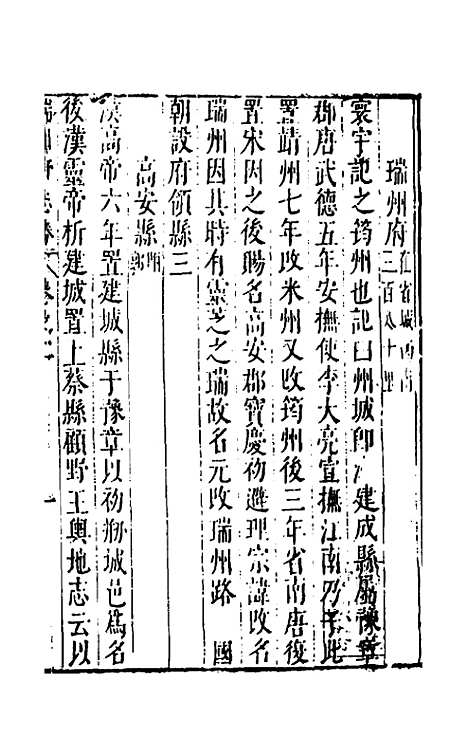 瑞州府在省城西南三百六十里
寰宇記之筠州也記曰州城即 建成縣屬豫章
郡唐武德五年安撫使李大亮宣撫江南乃于此
置靖州七年改米州又改筠州後三年省南唐復
置宋因之後賜名高安郡寶慶初避理宗諱改名
瑞州因其時有靈芝之瑞故名元改瑞州路 國
朝設府領縣三
高安縣附郭
漢高帝六年置建城縣于豫章以初拊城邑爲名
後漢靈帝析建城置上蔡縣顧野王輿地志云以